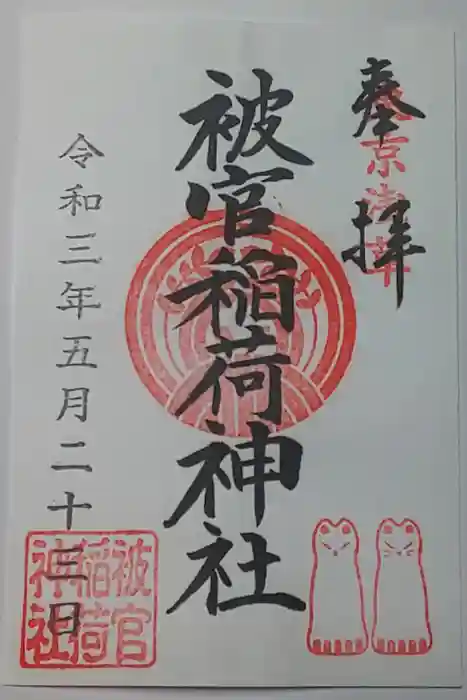 奉拝
東京浅草
被官稲荷神社
令和三年五月二十三日
被官
稲荷
神社